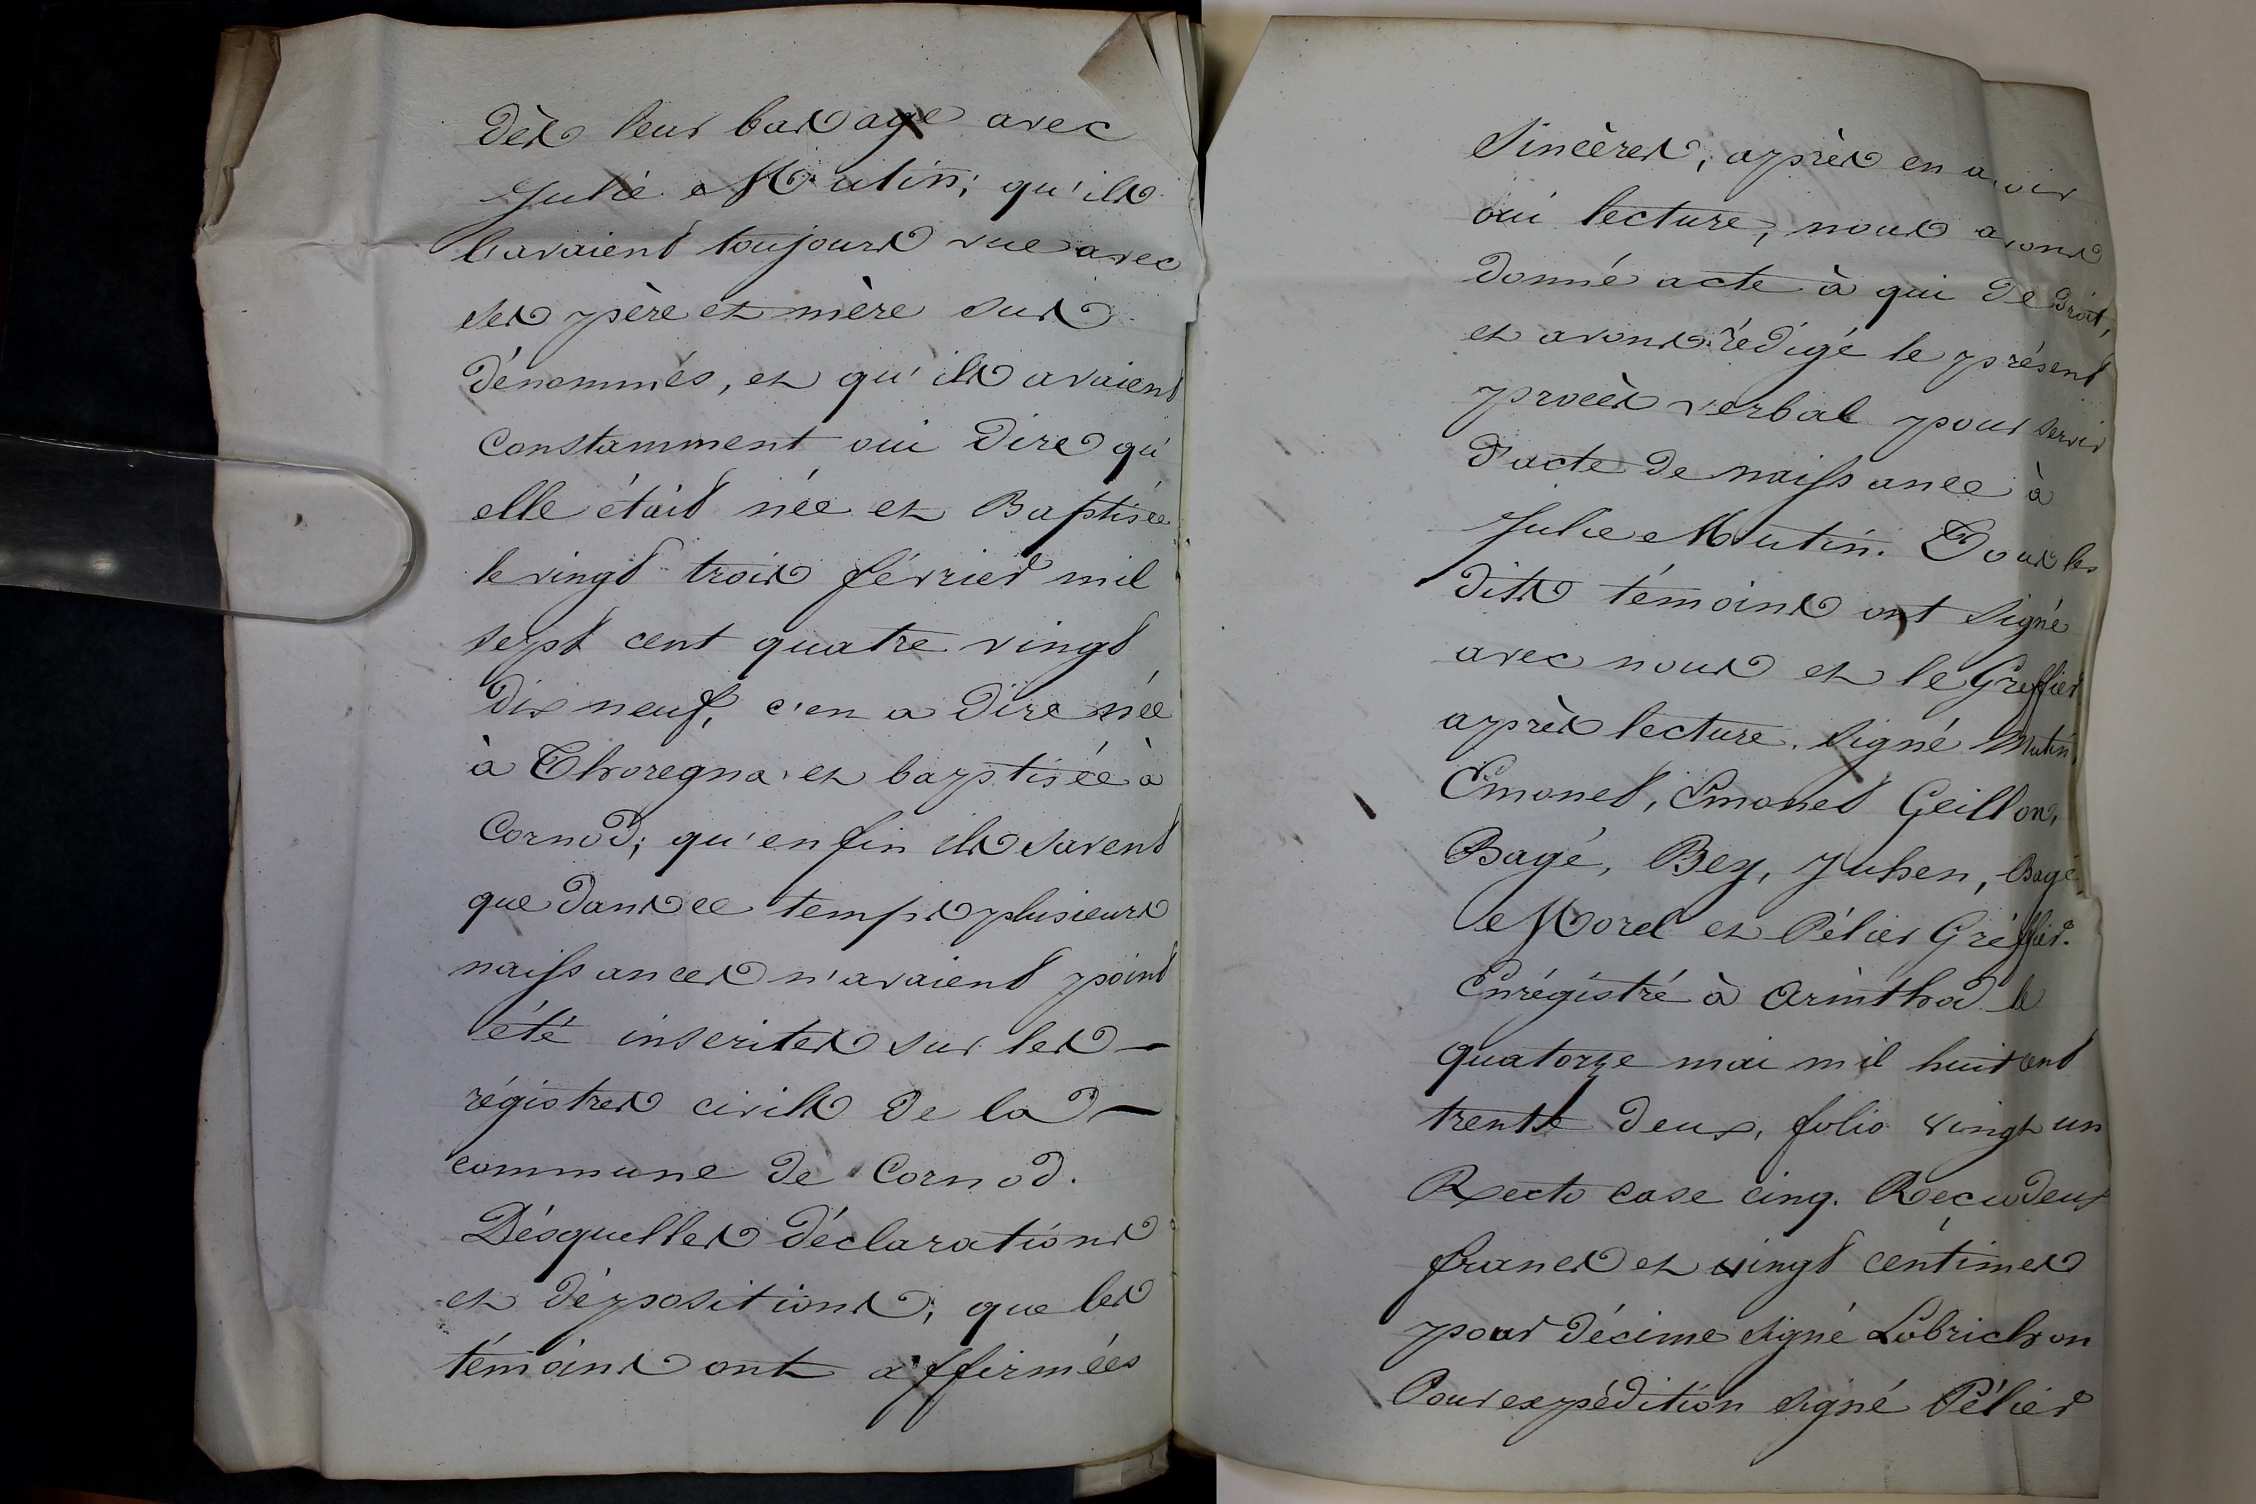 dès leur bas age avec
Julie Mutin; qu'ils
l'avaient toujours vue avec
ses père et mère sus
dénommés, et qu'ils avaient
constamment oui dire qu'
elle était née et Baptisée
le vingt trois février mil
sept cent quatre vingt
dix neuf, c'en a dire née
à Thoregna et baptisée à
Cornod; qu'enfin ils savent
que dans ce temps plusieurs
naissances n'avaient point
été inscrites sur les
régistres civils de la
commune de Cornod.
Désquelles déclarations
et dépositions; que les
témoins ont affirmées
Sincères, après en avoir
oui lecture, nous avons
donné acte à qui de droit,
et avons rédigé le présent
procès verbal pour servir
d'acte de naissance à
Julie Mutin. Tous les
dits témoins ont signé
avec nous et le Greffier
après lecture. Signé Mutin,
Emonet, Emonet Geillon,
Bagé, Bey, Juhen, Bagé,
Morel et Pélier Gréffier.
Enrégistré à Arinthod le
quatorze mai mil huit cent
trente deux, folio vingt un
Recto case cinq. Recu deux
francs et vingt centimes
pour décime signé Lobrichon
Pour expédition signé Pélier